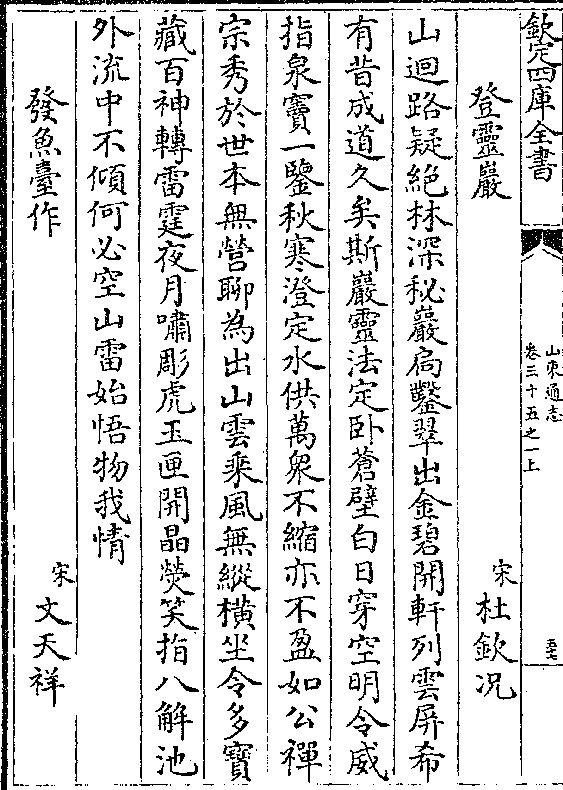 欽定四庫全書
山東通志
卷三十五之一上
五七
登靈巖
宋 杜欽况
山迴路疑絶林深秘巖扃鑿翠出金碧開軒列雲屏希
有昔成道久矣斯巖靈法定卧蒼壁白日穿空明令威
指泉竇一鑒秋寒澄定水供萬衆不縮亦不盈如公禪
宗秀於世本無營聊為出山雲乘風無縱横坐令多寶
藏百神轉雷霆夜月嘯彫虎玉匣開晶熒笑指八解池
外流中不傾何必空山雷始悟物我情
發魚臺作
宋 文天祥